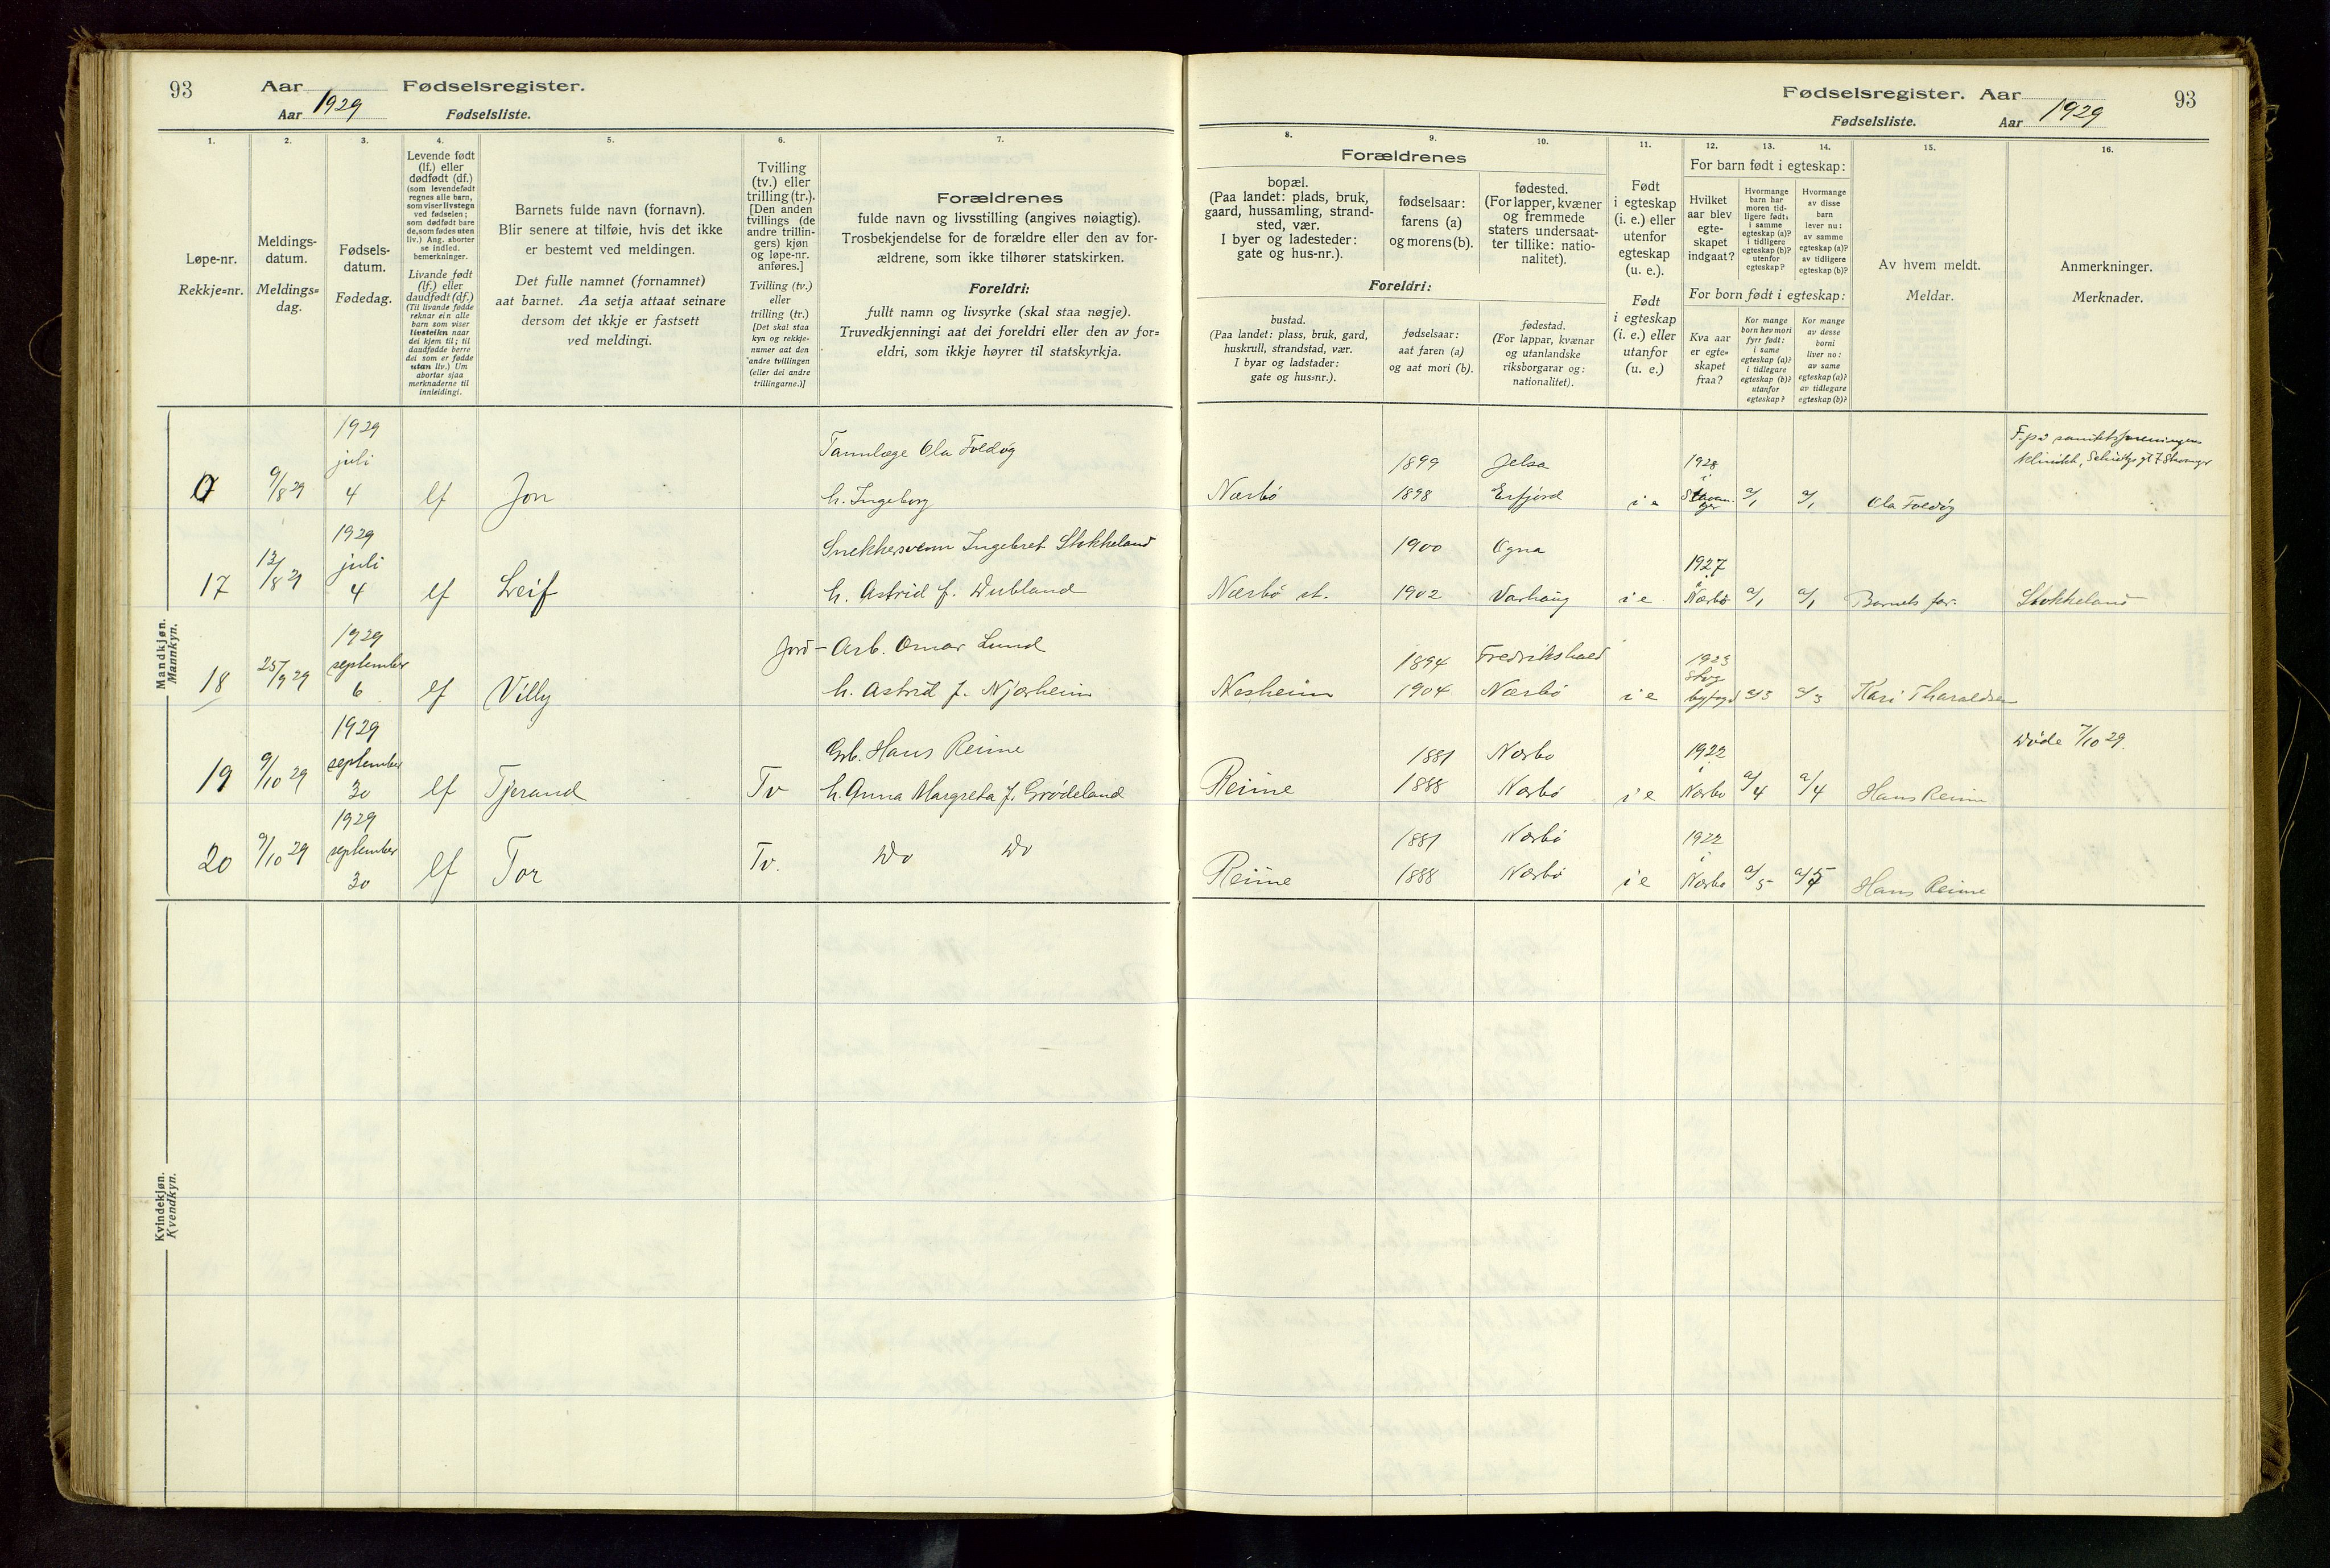 93
Aar
Fødselsregister.
Aar 1929
Fødselsliste.
1.
Løpe-nr.
Rekkje=nr.
2.
Meldings-
datum.
Meldings=
dag.
3.
Fødsels-
datum.
Fødedag.
4.
Levende født
(lf.) eller
dødfødt (df.)
(som levendefødt
regnes alle barn,
som viser livstegn
ved fødselen;
som dødfødt bare
de, som fødes uten
liv.) Ang. aborter
se indled.
bemerkninger.
Livande født
(lf.) eller
daudfødt (df.)
(Til livande fødde
reknar ein alle
barn som viser
livsteikn naar
dei kjem til; til
daudfødde berre
dei som er fødde
utan liv.) Um
abortar sjaa
merknaderne til
innleidingi.
5.
Barnets fulde navn (fornavn).
Blir senere at tilføie, hvis det ikke
er bestemt ved meldingen.
Det fulle namnet (fornamnet)
aat barnet. Aa setja attaat seinare
dersom det ikkje er fastsett
ved meldingi.
6.
Tvilling
(tv.) eller
trilling (tr.).
[Den anden
tvillings (de
andre trillin-
gers) kjøn
og løpe-nr.
anføres.]
Tvilling (tv.)
eller
trilling (tr.)
[Det skal staa
kyn og rekkje-
numer aat den
andre tvillingen
(eller dei andre
trillingarne.)]
7.
Forældrenes
fulde navn og livsstilling (angives nøiagtig).
Trosbekjendelse for de forældre eller den av for-
ældrene, som ikke tilhører statskirken.
Foreldri:
fullt namn og livsyrke (skal staa nøgje).
Truvedkjenningi aat dei foreldri eller den av for=
eldri, som ikkje høyrer til statskyrkja.
Fødselsregister. Aar
93
Fødselsliste.
Aar 1929
8.
9.
10.
Forældrenes
bopæl.
(Paa landet: plads, bruk,
gaard, hussamling, strand-
sted, vær.
I byer og ladesteder:
gate og hus-nr.).
fødselsaar:
farens (a)
og morens (b).
fødested.
(For lapper, kvæner
og fremmede
staters undersaat-
ter tillike: natio-
nalitet).
Foreldri:
bustad.
(Paa landet: plass, bruk, gard,
huskrull, strandstad, vær.
I byar og ladstader:
gate og hus=nr.).
fødselsaar:
aat faren (a)
og aat mori (b).
fødestad.
(For lappar, kvænar
og utanlandske
riksborgarar og:
nationalitet).
11.
Født
i egteskap
(i. e.) eller
utenfor
egteskap
(u. e.).
Født
i egteskap
(i. e.) eller
utanfor
(u. e.)
12.
13.
14.
For barn født i egteskap:
Hvilket
aar blev
egte-
skapet
indgaat?
Hvormange
barn har
moren tid-
ligere født:
i samme
egteskap (a)?
i tidligere
egteskap (b)?
utenfor
egteskap?
Hvormange
av disse
barn
lever nu:
av samme
egteskap (a)?
av tidligere
egteskap (b)?
For born født i egteskap:
Kva aar
er egte=
skapet
fraa?
Kor mange
born hev mori
fyrr født:
i same
egteskap (a)?
i tidlegare
egteskap (b)?
utanfor
egteskap?
Kor mange
av desse
borni
liver no:
av same
egteskap (a)?
av tidlegare
egteskap (b)?
15.
Av hvem meldt.
Meldar.
16.
Anmerkninger.
Merknader.
Mandkjøn.
Mannkyn.
9/8 29
1929
juli
4
lf
Jon
Tannlæge Ola Foldøy
h. Ingeborg
Nærbø
1899
1898
Jelsa
Erfjord
i e
1928
i
Stavan-
ger
a/1
a/1
Ola Foldøy
17
12/8 29
1929
juli
4
lf
Leif
Snekkersvenn Ingebret Stokkeland
h. Astrid f. Dubland
Nærbø st.
1900
1902
Ogna
Varhaug
i e
1927
i
Nærbø
a/1
a/1
Barnets far.
Stokkeland
18
25/9 29
1929
september
6
lf
Villy
Jord-Arb. Omar Lund
h. Astrid f. Njærheim
Nesheim
1894
1904
Fredrikshald
Nærbø
i e
1923
a/3
a/3
Kari Tharaldsen
19
9/10 29
1929
september
30
lf
Tjerand
Tv
Grb. Hans Reime
h. Anna Margreta f. Grødeland
Reime
1881
1888
Nærbø
Nærbø
i e
1922
i
Nærbø
a/4
a/4
Hans Reime
Døde 7/10 29.
20
9/10 29
1929
september
30
lf
Tor
Tv.
Do Do
Reime
1881
1888
Nærbø
Nærbø
i e
1922
i
Nærbø
a/5
Hans Reime
Kvindekjøn.
Kvendkyn.